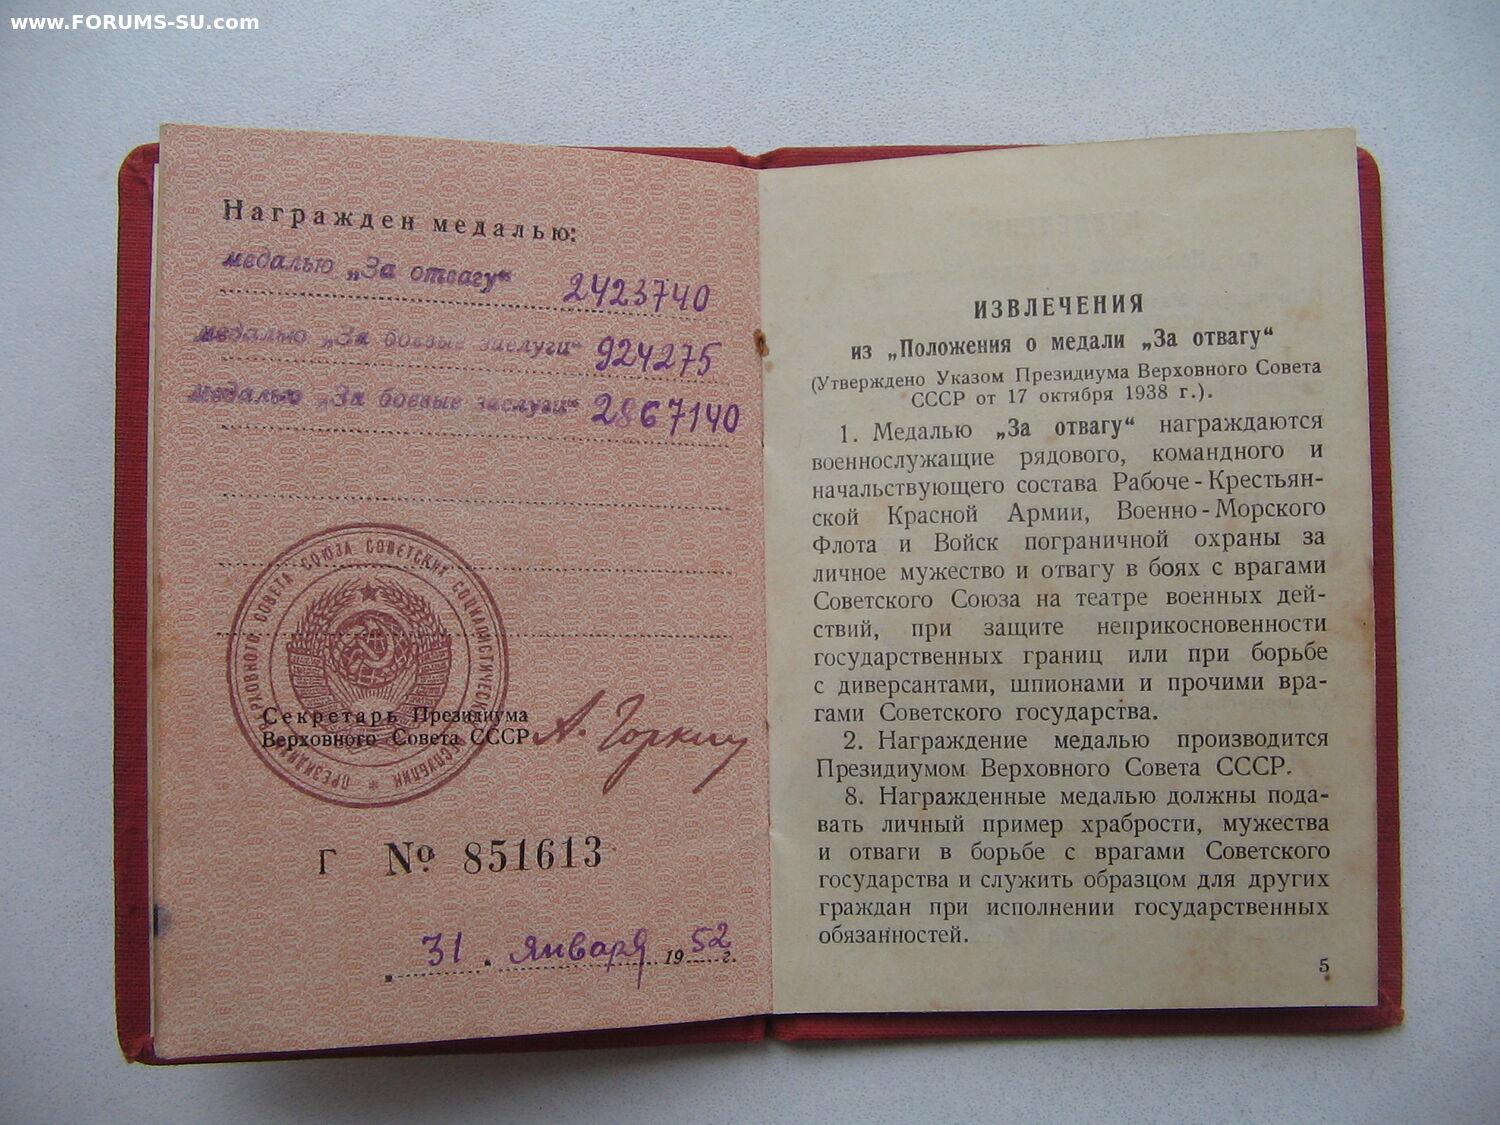 www.FORUMS-SU.com
Награжден медалью:
медалью „За отвагу“ 2423740
медалью „За боевые заслуги“ 924275
медалью „За боевые заслуги“ 2867140
ПРЕЗИДИУМ ВЕРХОВНОГО СОВЕТА СОЮЗА СОВЕТСКИХ СОЦИАЛИСТИЧЕСКИХ РЕСПУБЛИК
Секретарь Президиума
Верховного Совета СССР А. Горкин
Г № 851613
31 января 1952 г.
ИЗВЛЕЧЕНИЯ
из „Положения о медали „За отвагу“
(Утверждено Указом Президиума Верховного Совета
СССР от 17 октября 1938 г.).
1. Медалью „За отвагу“ награждаются
военнослужащие рядового, командного и
начальствующего состава Рабоче-Крестьян-
ской Красной Армии, Военно-Морского
Флота и Войск пограничной охраны за
личное мужество и отвагу в боях с врагами
Советского Союза на театре военных дей-
ствий, при защите неприкосновенности
государственных границ или при борьбе
с диверсантами, шпионами и прочими вра-
гами Советского государства.
2. Награждение медалью производится
Президиумом Верховного Совета СССР.
8. Награжденные медалью должны пода-
вать личный пример храбрости, мужества
и отваги в борьбе с врагами Советского
государства и служить образцом для других
граждан при исполнении государственных
обязанностей.
5